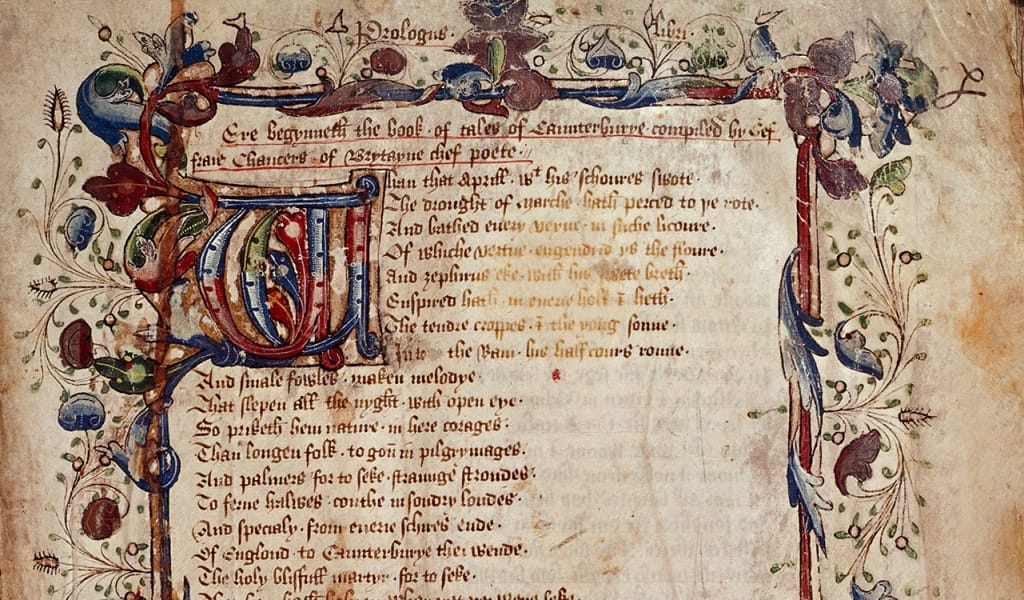 Prologus libri
Ere begynneth the book · of tales of Caunterburye · compiled by Gef
fraie Chaucers · of Brytayne chef poete
Whan that Aprill · wt his schoures swote ·
The drought of marche hath perced to þe rote ·
And bathed euery veyne · in suche licoure ·
Of whiche vertue · engendrid ys the floure ·
And zephirus eke · with his swete breth ·
Enspired hath · in euerie holt & heth ·
The tendre croppes · & the yong sonne ·
In to the Ram · his half cours ronne ·
And smale fowles · maken melodye ·
That slepen all the nyght · with open eye ·
So priketh hem nature · in here corages ·
Than longen folk · to gon in pilgrymages ·
And palmers for to seke · straunge strondes ·
To ferne halwes · couthe in sondry londes ·
And specialy · from euerie schires ende ·
Of Englond · to Caunterburye thei wende ·
The holy blisfull martyr · for to seke ·